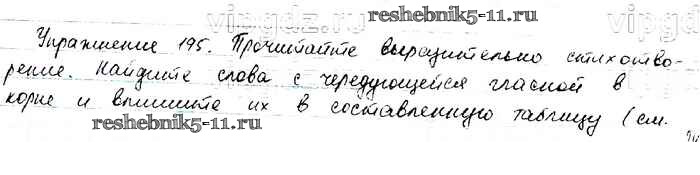 reshebnik5-11.ru
vipgdz.ru
Упражнение 195. Прочитайте выразительно стихотво-
рение. Найдите слова с чередующейся гласной в
корне и впишите их в составленную таблицу (см.
reshebnik5-11.ru